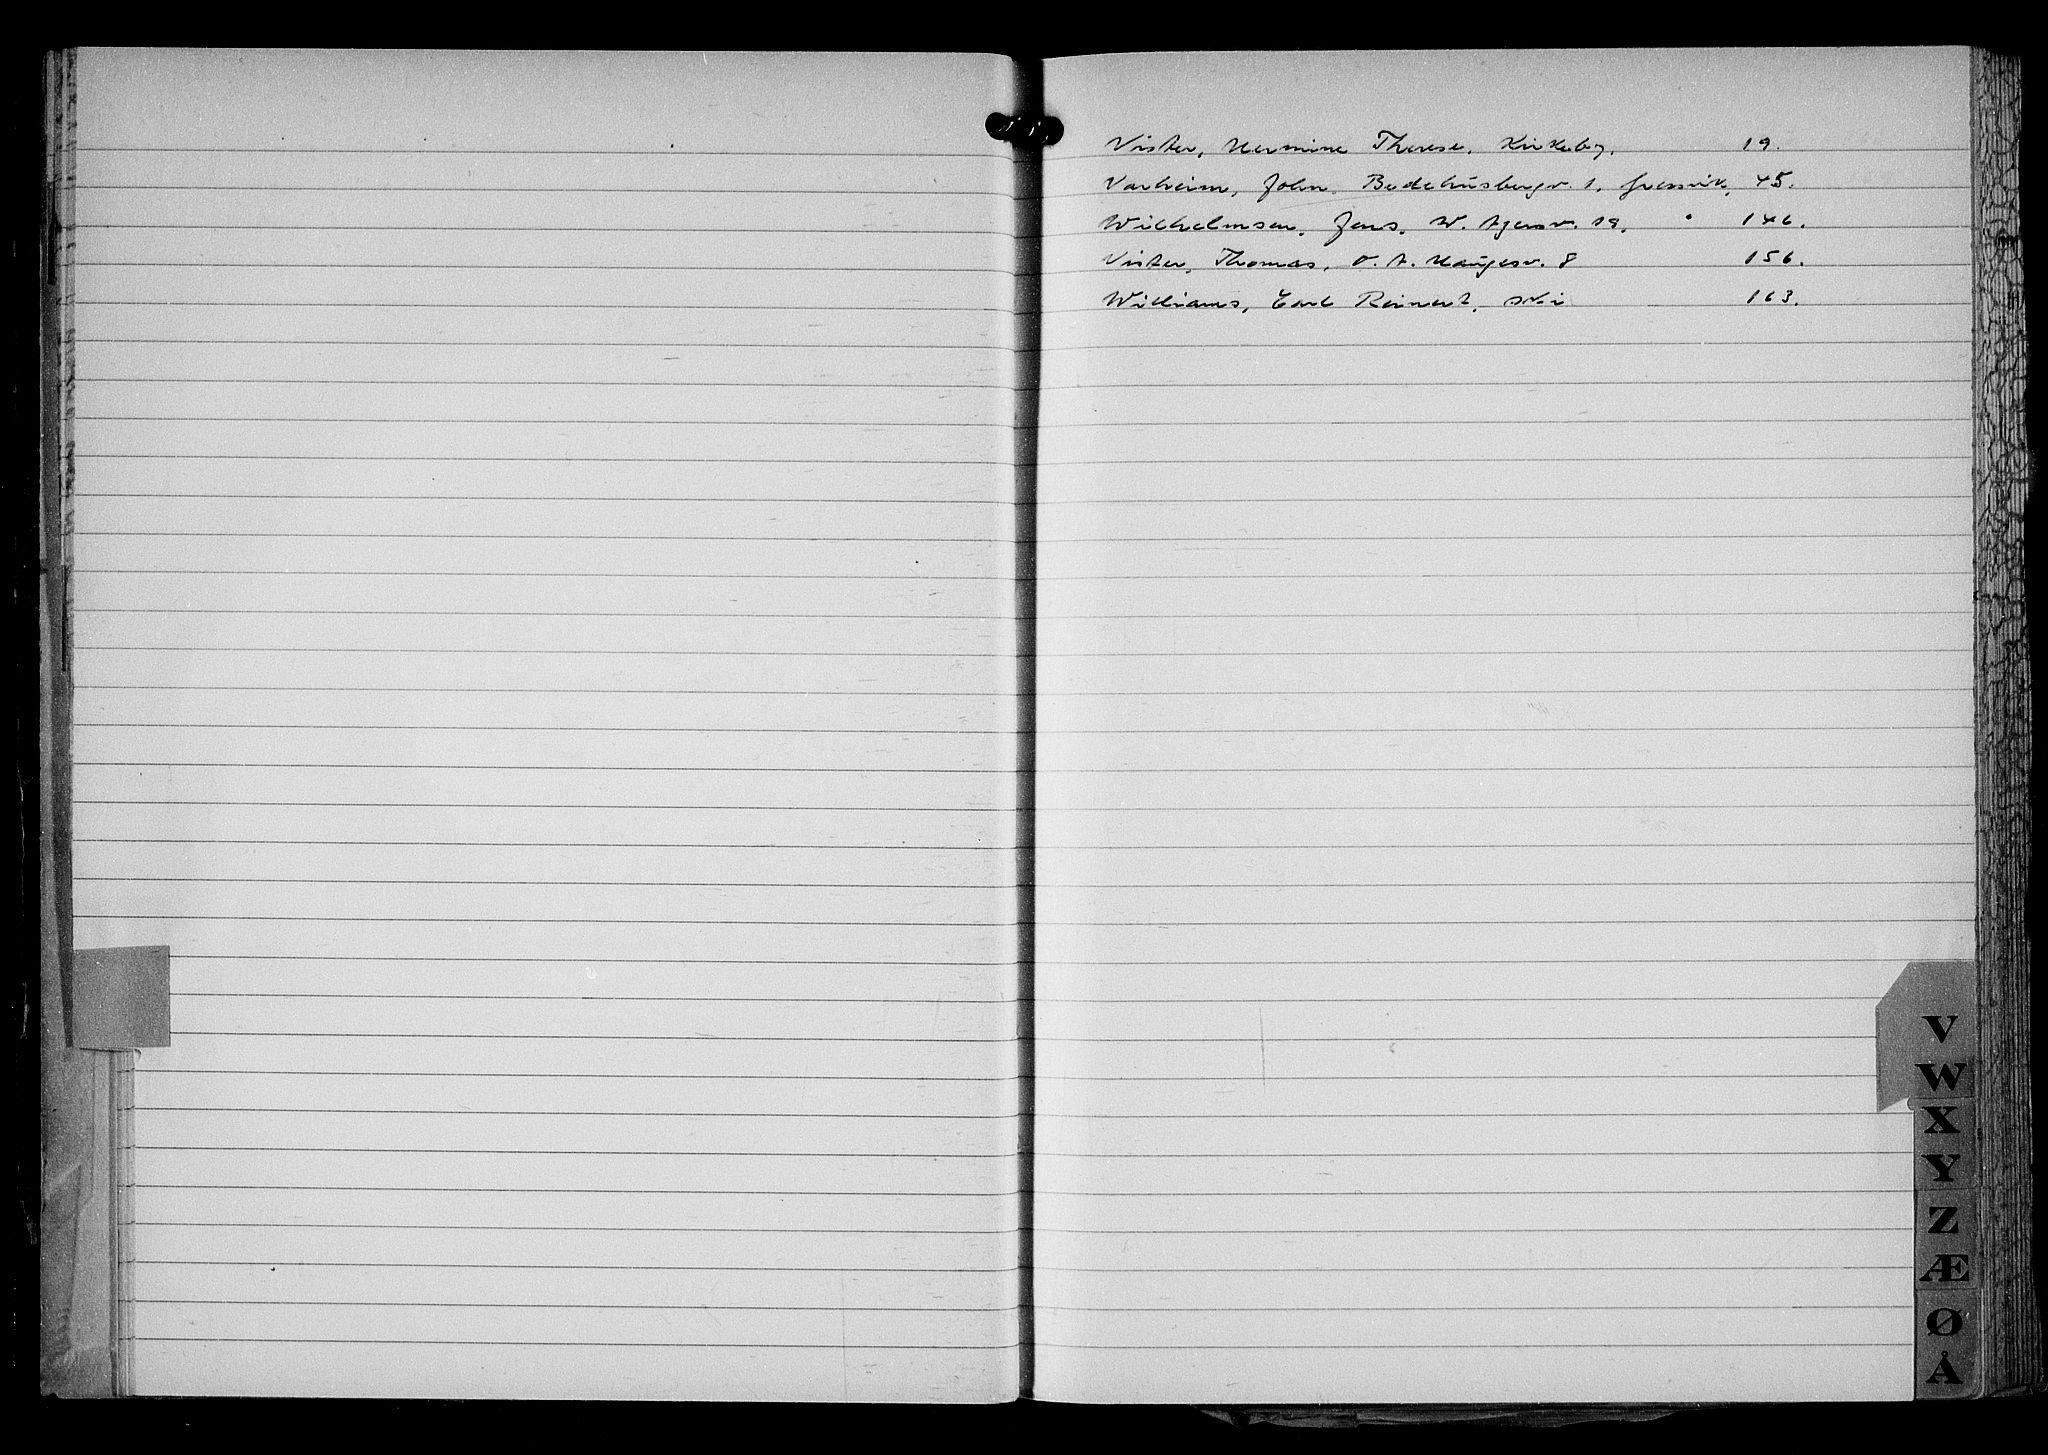 Vister, Hermine Therese, Kirkeby. 19.
Varheim, John, Bedehusbergv. 1, Gressvik, 45.
Wilhelmsen, Jens, W. Agersv. 19, " 146.
Vister, Thomas, O. A. Haugesv. 8 156.
Williams, Earl Reinert, Ski 163.
V
W
X
Y
Z
Æ
Ø
Å